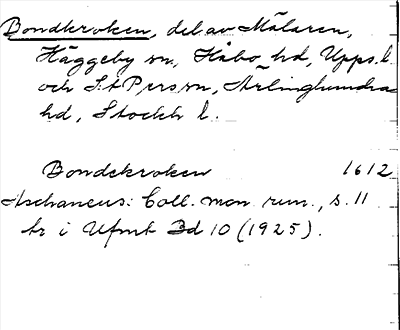 Bondkroken, del av Mälaren,
Häggeby sn, Håbo hd, Upps. l.
och S:t Pers sn, Ärlinghundra
hd, Stockh l.
Bondekroken 1612
Aschaneus: Coll. mon. run., s. 11
tr i Ufmt Bd 10 (1925).